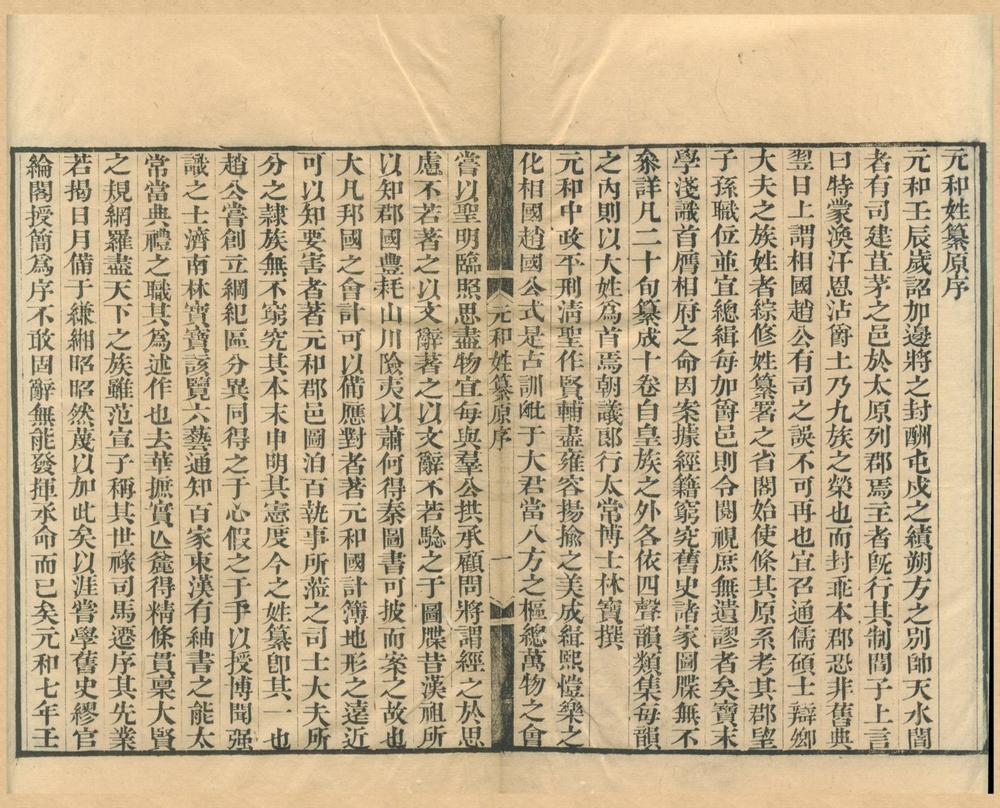 元和姓纂原序
元和壬辰歲詔加邊將之封酬屯戍之績朔方之別帥天水閻
者有司建苴茅之邑於太原列郡焉主者旣行其制閻子上言
曰特蒙渙汗恩沾爵土乃九族之榮也而封乖本郡恐非舊典
翌日上謂相國趙公有司之誤不可再也宜召通儒碩士辯卿
大夫之族姓者綜修姓纂署之省閣始使條其原系考其郡望
子孫職位並宜總緝每加爵邑則令閱視庶無遺謬者矣寶末
學淺識首膺相府之命因案據經籍窮究舊史諸家圖牒無不
叅詳凡二十旬纂成十卷自皇族之外各依四聲韻類集每韻
之內則以大姓爲首焉朝議郎行太常博士林寶撰
元和中政平刑淸聖作賢輔盡雍容揚揄之美成緝熙愷樂之
化相國趙國公式是古訓毗于大君當八方之樞總萬物之會
元和姓纂原序
一
嘗以聖明臨照思盡物宜每與羣公拱承顧問將謂經之於思
慮不若著之以文辭著之以文辭不若騐之于圖牒昔漢祖所
以知郡國豐耗山川險夷以蕭何得秦圖書可披而案之故也
大凡邦國之會計可以備應對者著元和國計簿地形之遠近
可以知要害者著元和郡邑圖洎百執事所蒞之司士大夫所
分之隸族無不窮究其本末申明其憲度今之姓纂卽其一也
趙公嘗創立綱紀區分異同得之于心假之于手以授博聞强
識之士濟南林寶寶該覽六藝通知百家東漢有紬書之能太
常當典禮之職其爲述作也去華摭實亾麄得精條貫稟大賢
之規網羅盡天下之族雖范宣子稱其世祿司馬遷序其先業
若揭日月備于縑緗昭昭然蔑以加此矣以涯嘗學舊史繆官
綸閣授簡爲序不敢固辭無能發揮承命而已矣元和七年壬